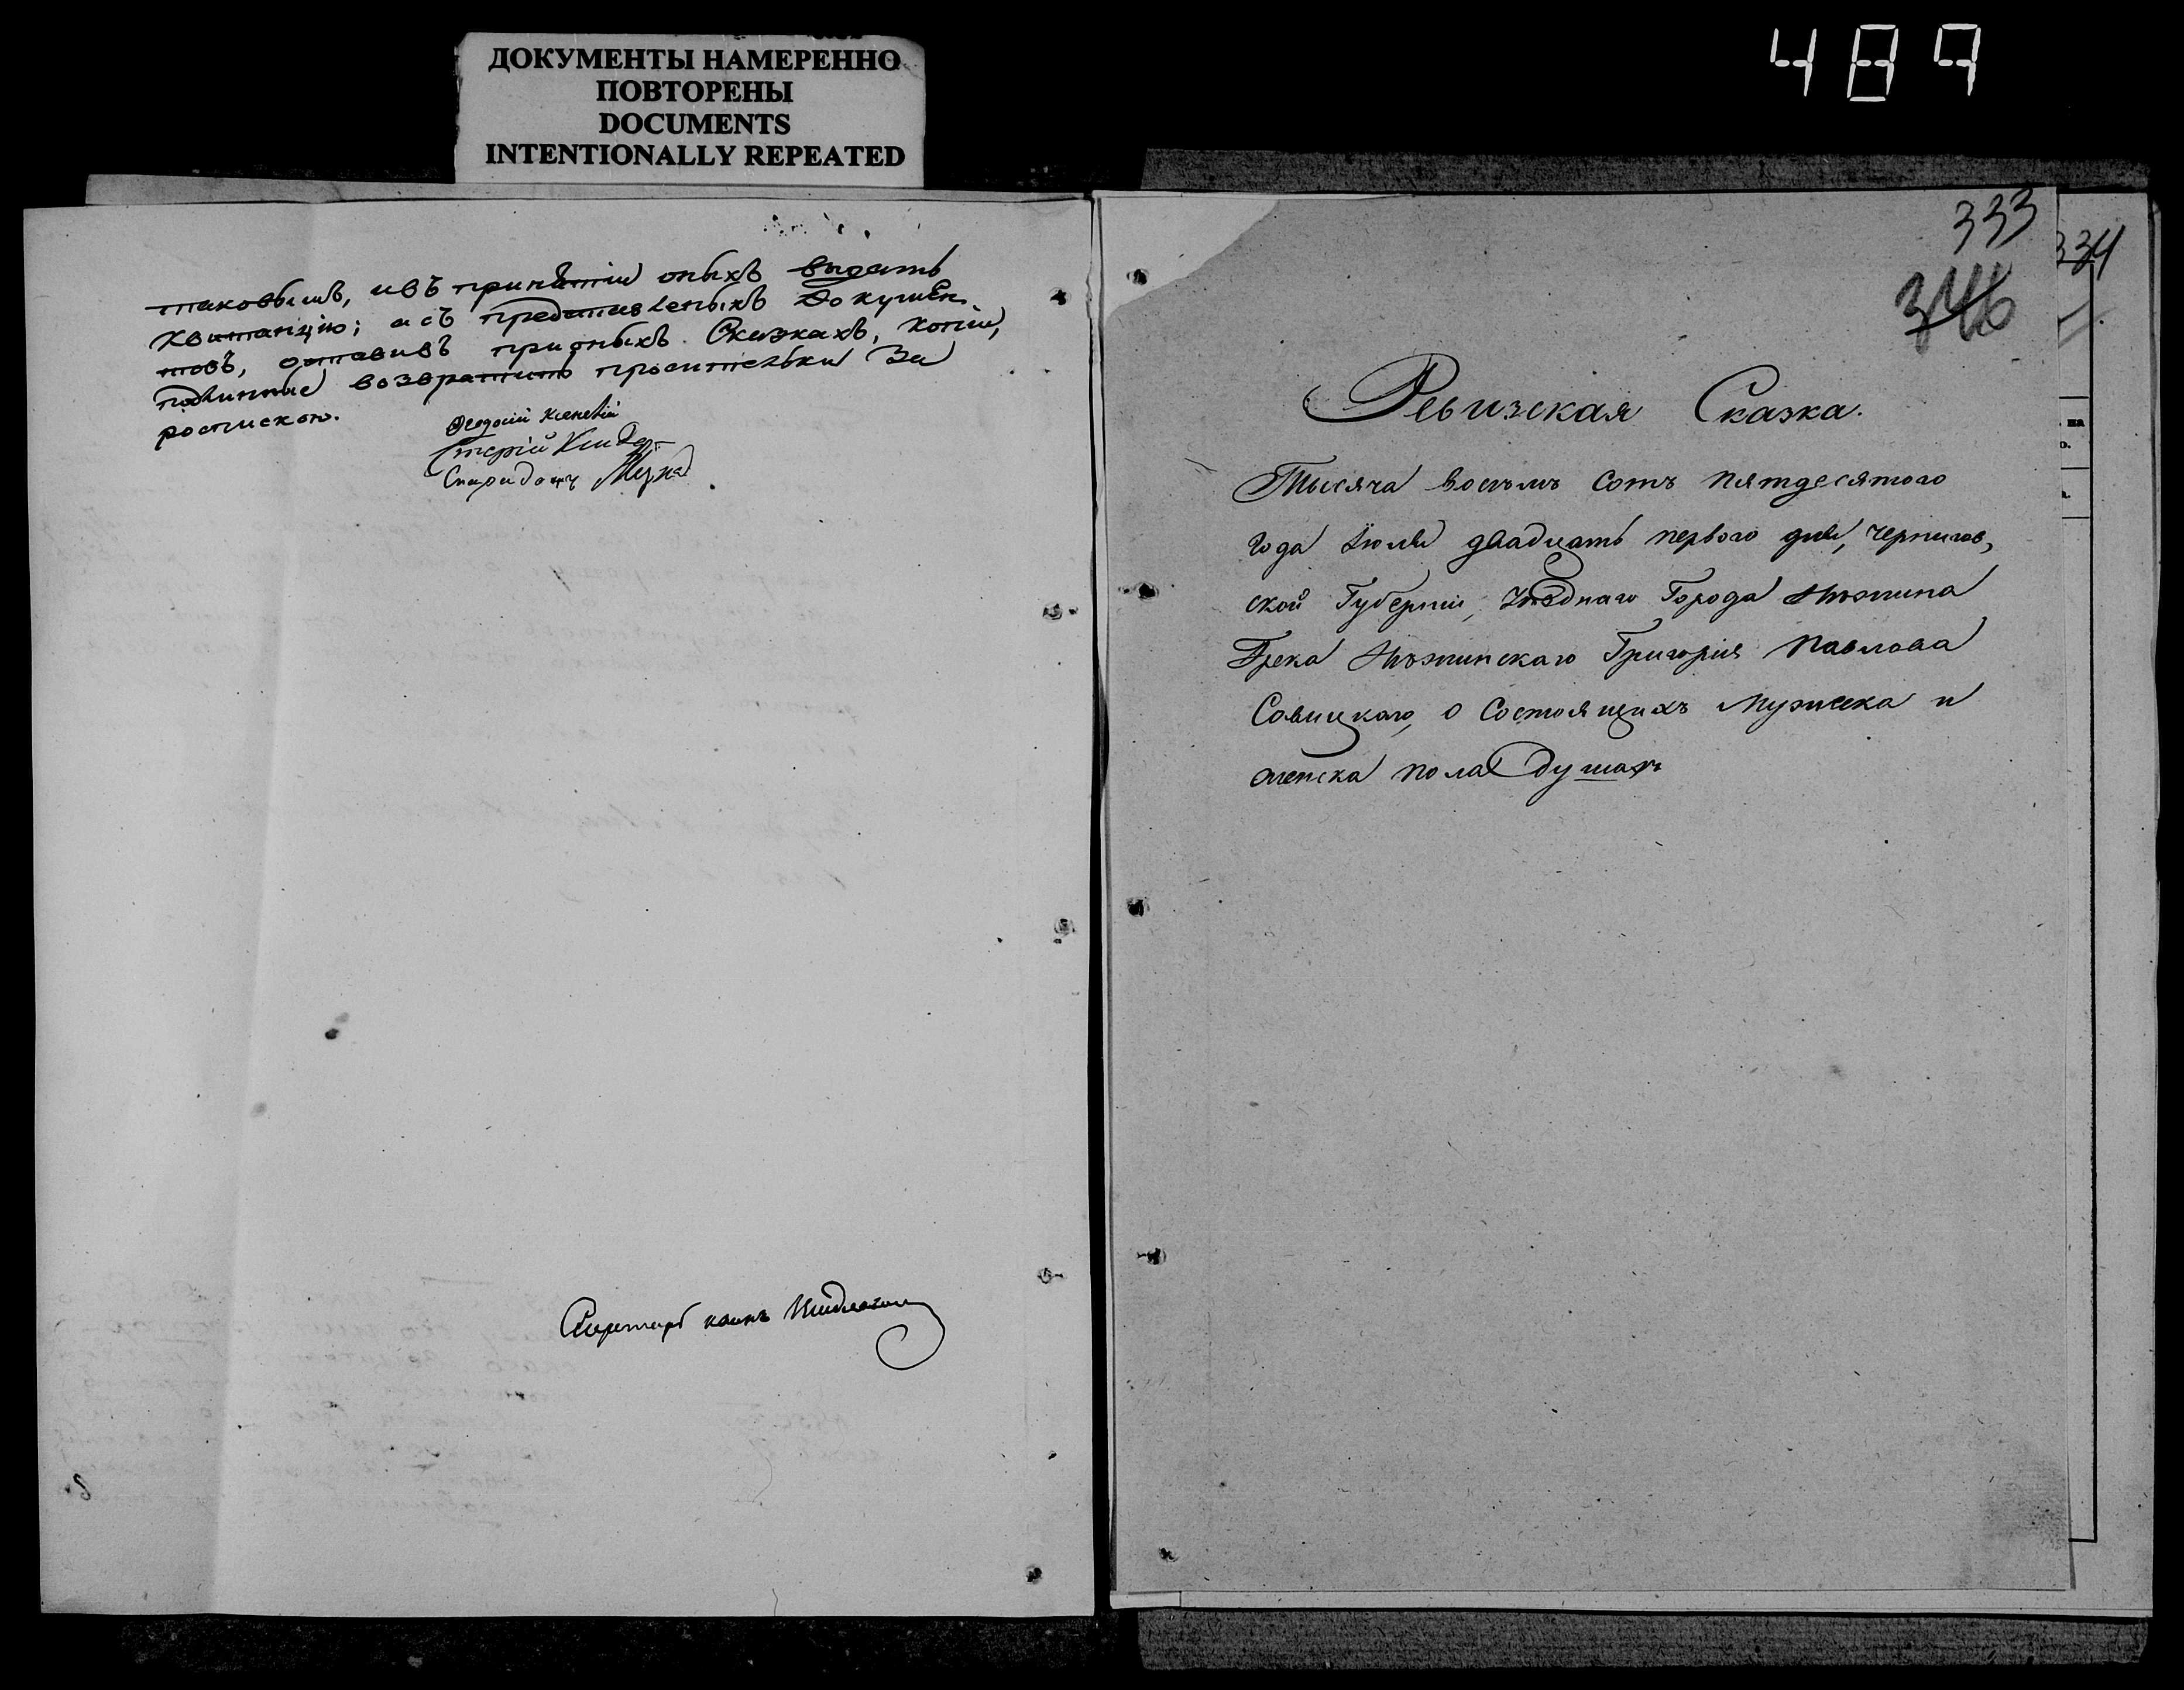 ДОКУМЕНТЫ НАМЕРЕННО
ПОВТОРЕНЫ
DOCUMENTS
INTENTIONALLY REPEATED
489
таковымъ, ивъ принятіи оныхъ выдать
квитанцію; а съ представленыхъ докумен
товъ, оставивъ прионыхъ Сказкахъ, копіи,
подлинные возвратить просительки За
роспиською.
Стерій
Спиридонъ
Секретарь
333
346
334
на
Ревизская Сказка.
Тысяча восемъ сотъ пятдесятого
года Іюля двадцать первого дня, Чернигов,
ской Губерніи, Уѣзднаго Города Нѣжина
Грека Нѣжинскаго Григорія Павлова
Савицкаго, о Состоящихъ Мужеска и
женска пола Душахъ